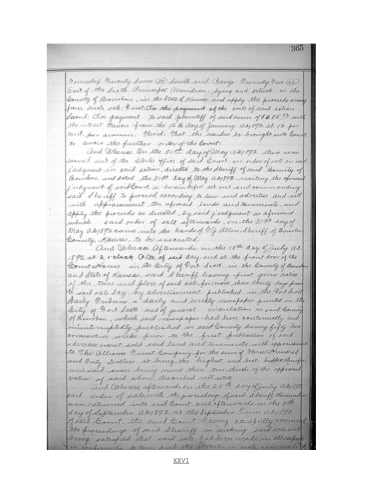 365
Township Twenty Seven (27) South and Range Twenty Two (22)
East of the Sixth Principal Meridian, lying and situate in the
County of Bourbon, in the State of Kansas and apply the proceeds arising
from such sale: First. For the payment of the costs of said action
Second. For payment to said plaintiff of said sum of $
with interest thereon from the 12th day of January AD 1892 at 12 per
cent per annum. Third: That the residue be brought into Court
to await the further order of the Court.
And Whereas On the day of May AD 1892 there was
issued out of the Clerks office of said Court an order of sale on said
judgment in said action, directed to the Sheriff of said County of
Bourbon, and dated the day of May AD 1892, reciting the aforesaid
judgment of said Court as hereinbefore set out and commanding
said Sheriff to proceed according to law and advertise and sell
with appraisement the aforesaid lands and tenements and
apply the proceeds as directed by said judgment as aforesaid
which said order of sale afterwards, on the 31st day of
May AD 1892 came into the hands of Allen Sheriff of Bourbon
County, Kansas, to be executed.
And Whereas Afterwards on the 18th day of July AD
1892, at 2 o'clock P.M. of said day, and at the front door of the
Court House in the City of Fort Scott, in the County of Bourbon
and State of Kansas, said Sheriff having first given notice
of the time and place of said sale, for more than thirty days prior
to said sale day, by advertisement published in the Fort Scott
Daily Tribune a daily and weekly newspaper printed in the
City of Fort Scott and of general circulation in said County
of Bourbon, which said newspaper had been continually and
uninterruptedly published in said County during fifty two
consecutive weeks prior to the first publication of said
advertisement sold said land and tenements with appraisement
to The Alliance Trust Company for the sum of Three Hundred
and Forty Dollars it being the highest and best bidder therefor
and said sum being more than two thirds of the appraised
value of said above described real estate
And Whereas afterwards on the 25th day of July AD 1892
said order of sale with the proceedings of said Sheriff thereunder
were returned into said Court and afterwards on the
day of September AD 1892 at the September Term AD 1892
of said Court the said Court having carefully examined
the proceedings of said Sheriff in making said sale and
being satisfied that said sale had been made in all respects
in conformity to law and the
XXVI